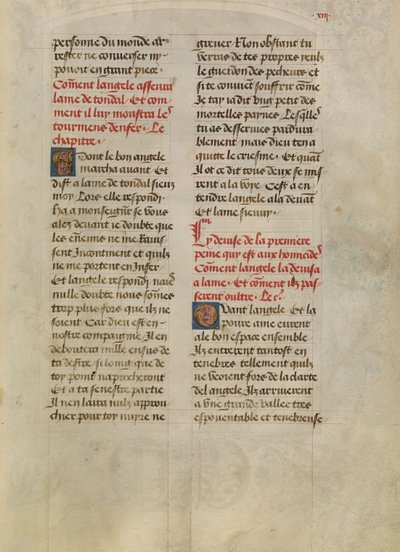 xiij
personne du monde ar
rester ne converser ny
pouoit en grant piece.
Coment langele asseura
lame de tondal Et com
ment il luy monstra les
tourmens denfer. Le
chapitre.
Dont le bon angele
marcha auant Et
dist a lame de tondal sieus
moy Lors elle respondi
ha a monseigneur se vous
ales deuant ie doubte que
les enemis ne me rauis
sent Incontinent et quilz
ne me portent en Infer
Et langele respondi naies
nulle doubte nous sommes
trop plus fors que ilz ne
soient Car dieu est en
nostre compaignie. Il en
deboutera mille en sus de
ta destre, si loing que de
toy point naprocheront
Et a ta senestre partie
Il nen laira nulz approu
chier pour toy nuyre ne
greuer Non obstant tu
verras de tes propres yeulz
le guerdon des pecheurs et
silz conuient souffrir come
Je tay ia dit bug petit des
mortelles paynes Lesquelles
tu as desseruies paidura
blement mais dieu ten a
quitte le criesme. Et quant
Il ot ce dit tous deux se mis
rent a la voye. Cest a en
tendre langele ala deuant
Et lame sieuuy.
Cy deuise de la premiere
peine quy est aux homicides
Coment langele la deuisa
a lame. Et coment ilz pas
serent oultre. Le c.
Quant langele Et la
poure ame eurent
ale bon espace ensemble
Ilz entrerent tantost en
tenebres tellement quilz
ne veoient fors de la clarte
del angele Ilz arriuerent
a vne grande vallee tres
espouentable et tenebreuse